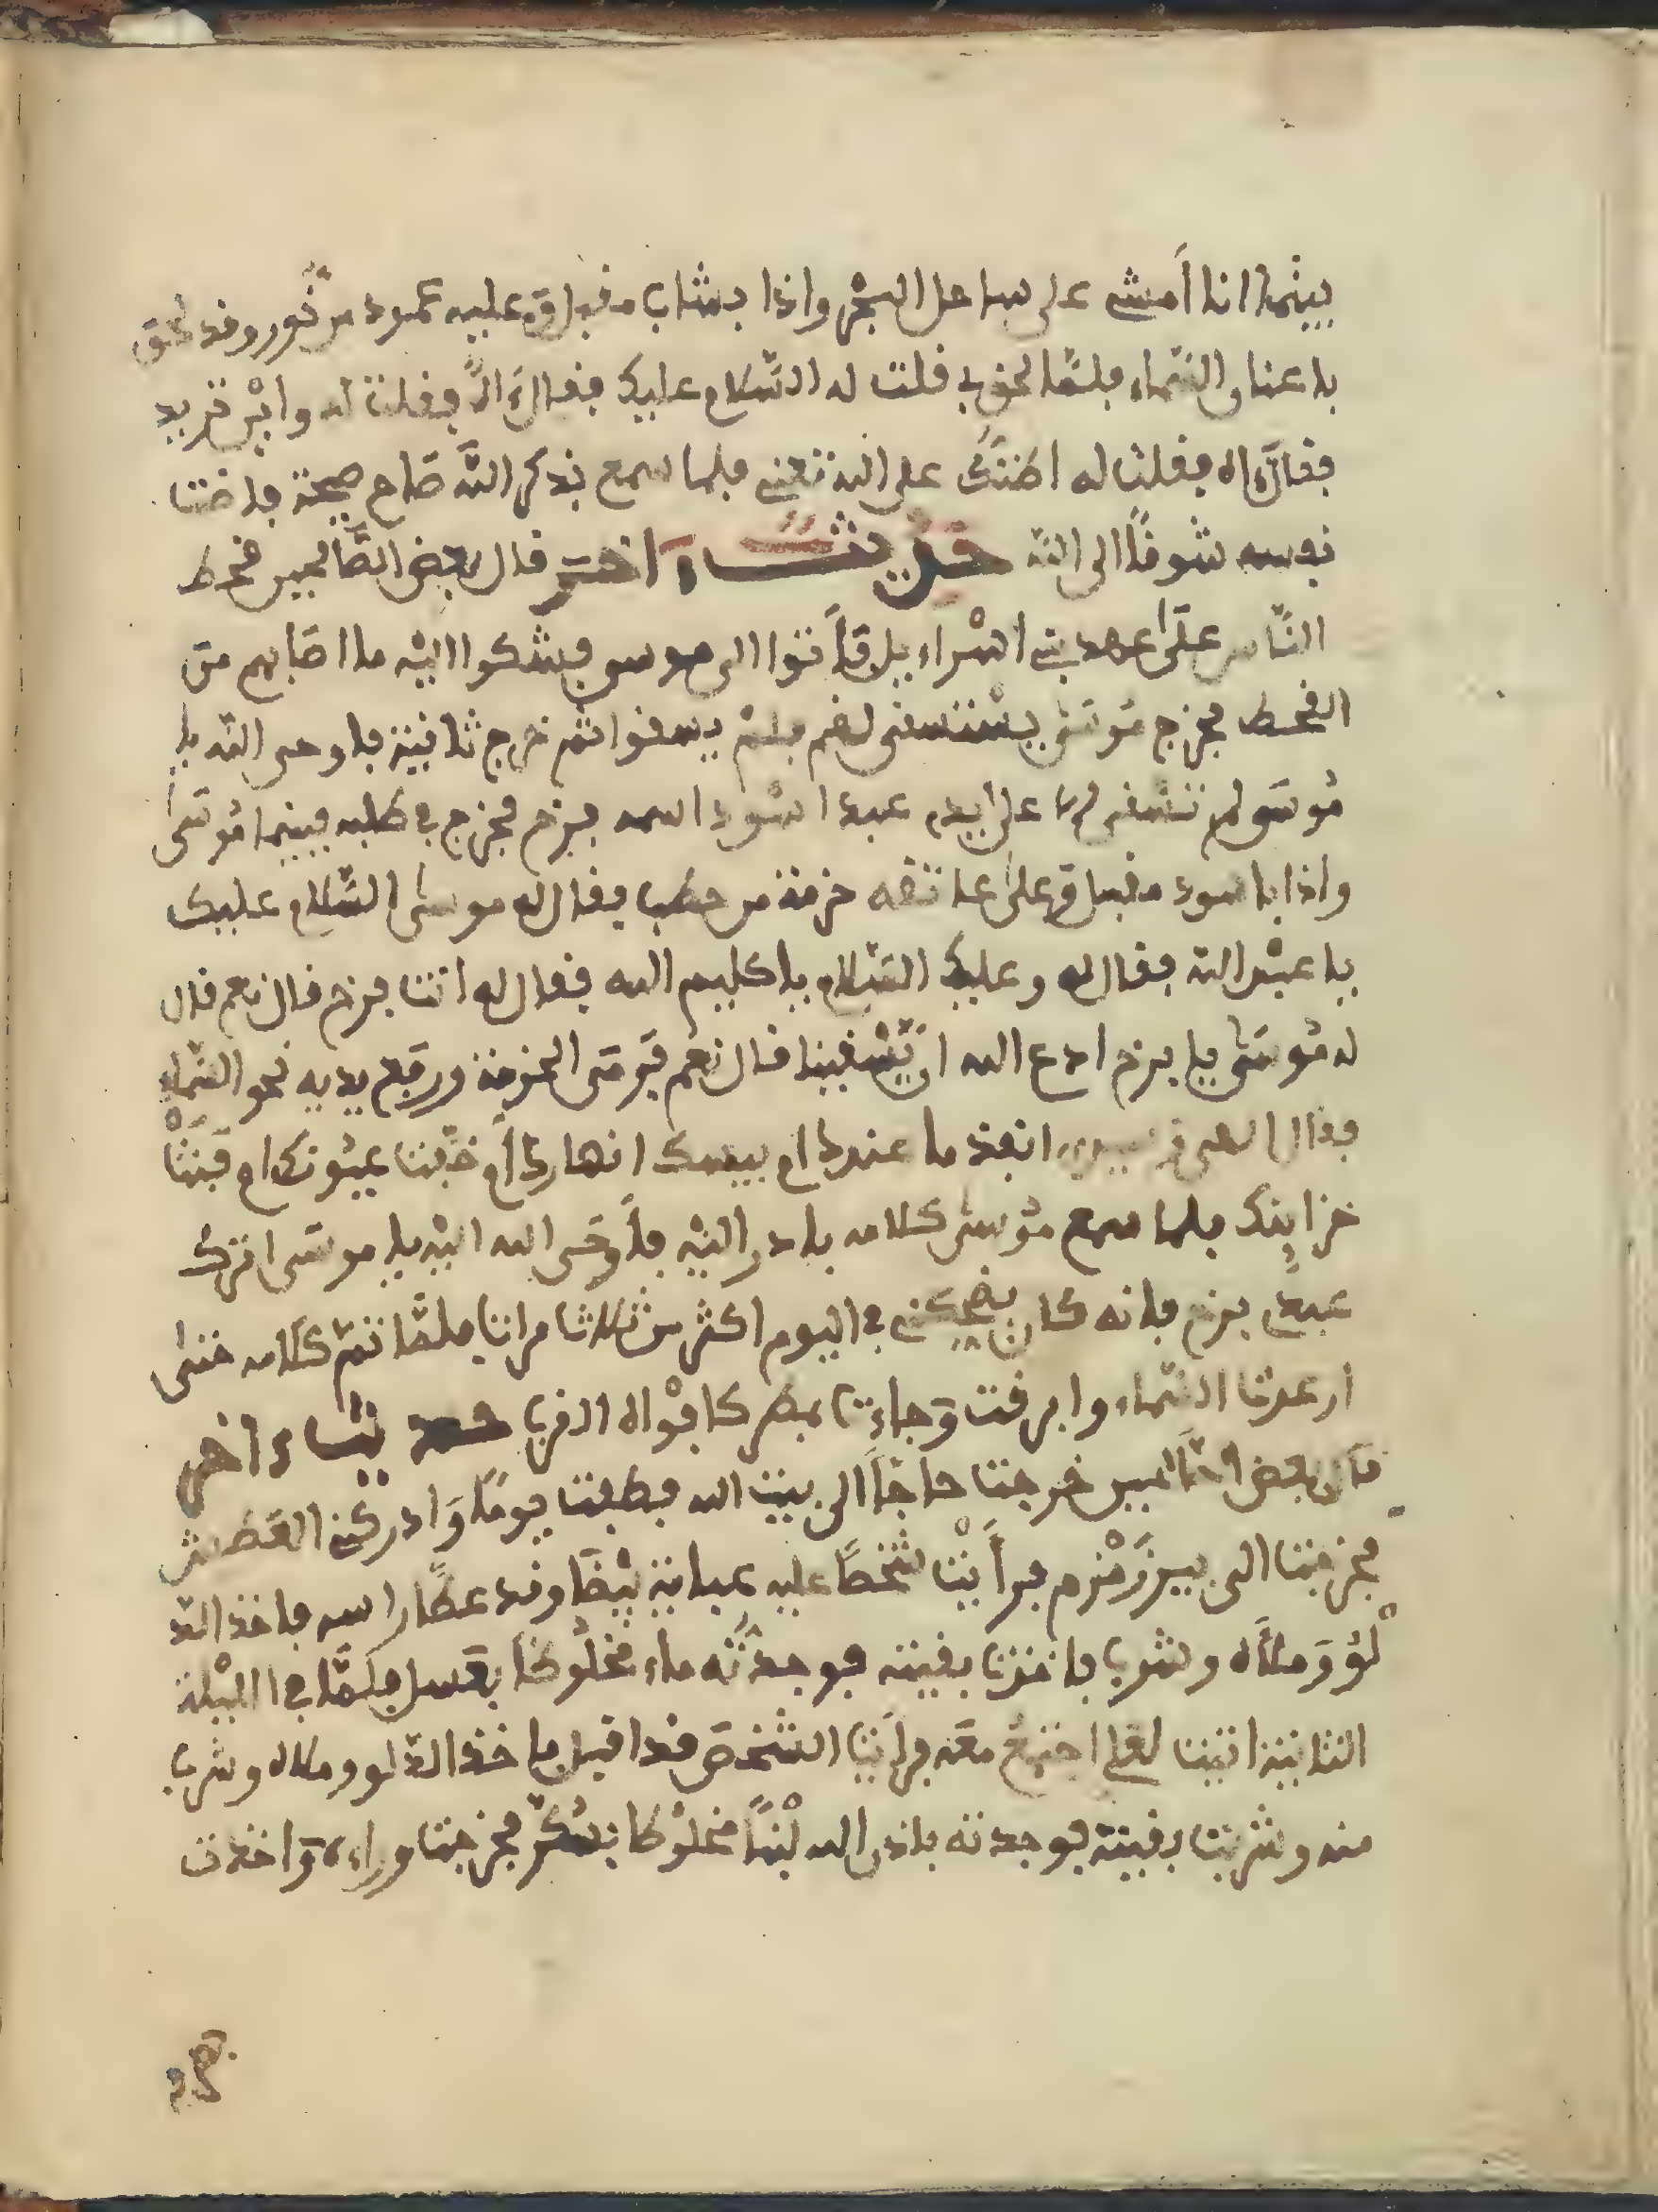 بينما انا أمشي على ساحل البحر واذا بشاب مقبل وعليه عمود من نور وقد لحق
باعنان السماء فلما لحق بي قلت له السلام عليك فقال الله فقلت له واين تريد
فقال الله فقلت له اظنك على الله تعني فلما سمع بذكر الله صاح صيحة فاضت
نفسه شوقا الى الله حديث اخر قال بعض الصالحين قحط
الناس على عهد بني اسراءيل فأتوا الى موسى فشكوا اليه ما اصابهم من
القحط فخرج موسى يستسقى لهم فلم يسقوا ثم خرج ثانية فاوحى الله يا
موسى لم تسقى الا على يد عبد اسود اسمه برخ فخرج في طلبه فبينما موسى
واذا باسود مقبل وعلى عاتقه حزمة من حطب فقال له موسى السلام عليك
يا عبد الله فقال له وعليك السلام يا كليم الله فقال له انت برخ قال نعم قال
له موسى يا برخ ادع الله ان يسقينا قال نعم فرمى الحزمة ورفع يديه نحو السماء
فقال الهى انفذ ما عندك ام يبست انهارك ام خربت عيونك ام فنت
خزاينك فلما سمع موسى كلامه بادر اليه فأوحى الله اليه يا موسى اترك
عبدي برخ فانه كان يضحكني في اليوم اكثر من ثلاث مرات فلما تم كلامه حتى
ارعدت السماء وابرقت وجاءت بمطر كافواه القرب حديث اخر
قال بعض الصالحين خرجت حاجا الى بيت الله فطفت يوما وادركني العطش
فخرجت الى بير زمزم فرأيت شخصا عليه عباية بيضا وقد غطا راسه فاخذ الد
لو وملأه وشرب فاخذت بقيته فوجدته ماء مخلوطا بعسل فلما في الليلة
الثانية اتيت لعلي اجتمع معه فرايت الشخص قد اقبل فاخذ الدلو وملاه وشرب
منه وشربت بقيته فوجدته باذن الله لبنا مخلوطا بسكر فخرجت وراءه واخذت